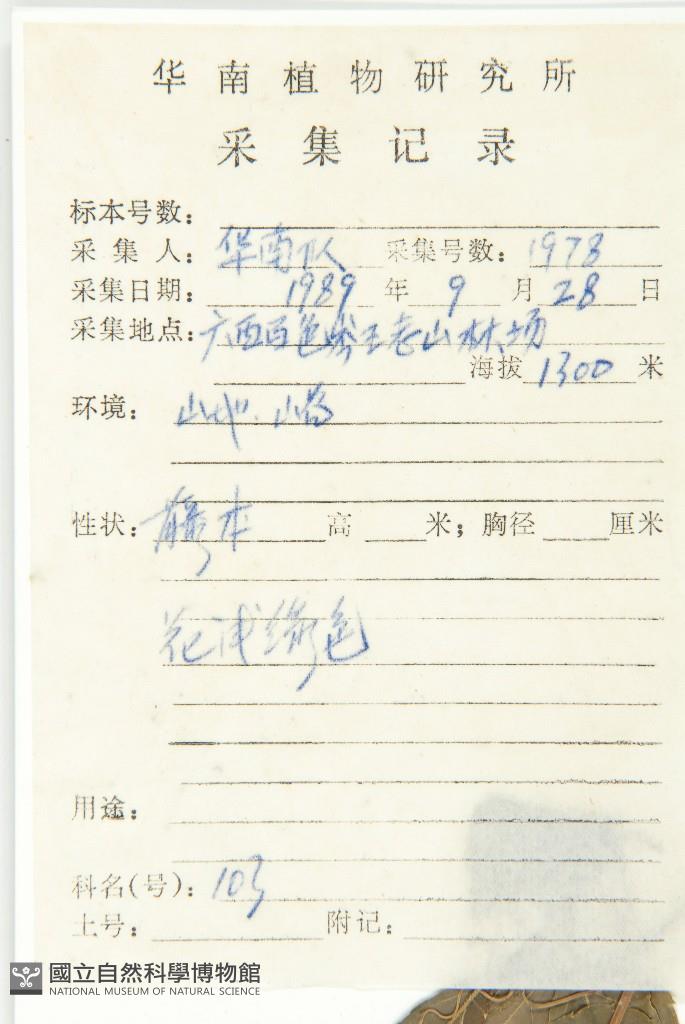 华南植物研究所
采集记录
标本号数：
采集人：华南队 采集号数：1978
采集日期：1989年9月28日
采集地点：广西百色岑王老山林场
海拔1300米
环境：山地.山谷
性状：藤本 高 米；胸径 厘米
花浅绿色
用途：
科名(号)：103
土号： 附记：
國立自然科學博物館
NATIONAL MUSEUM OF NATURAL SCIENCE